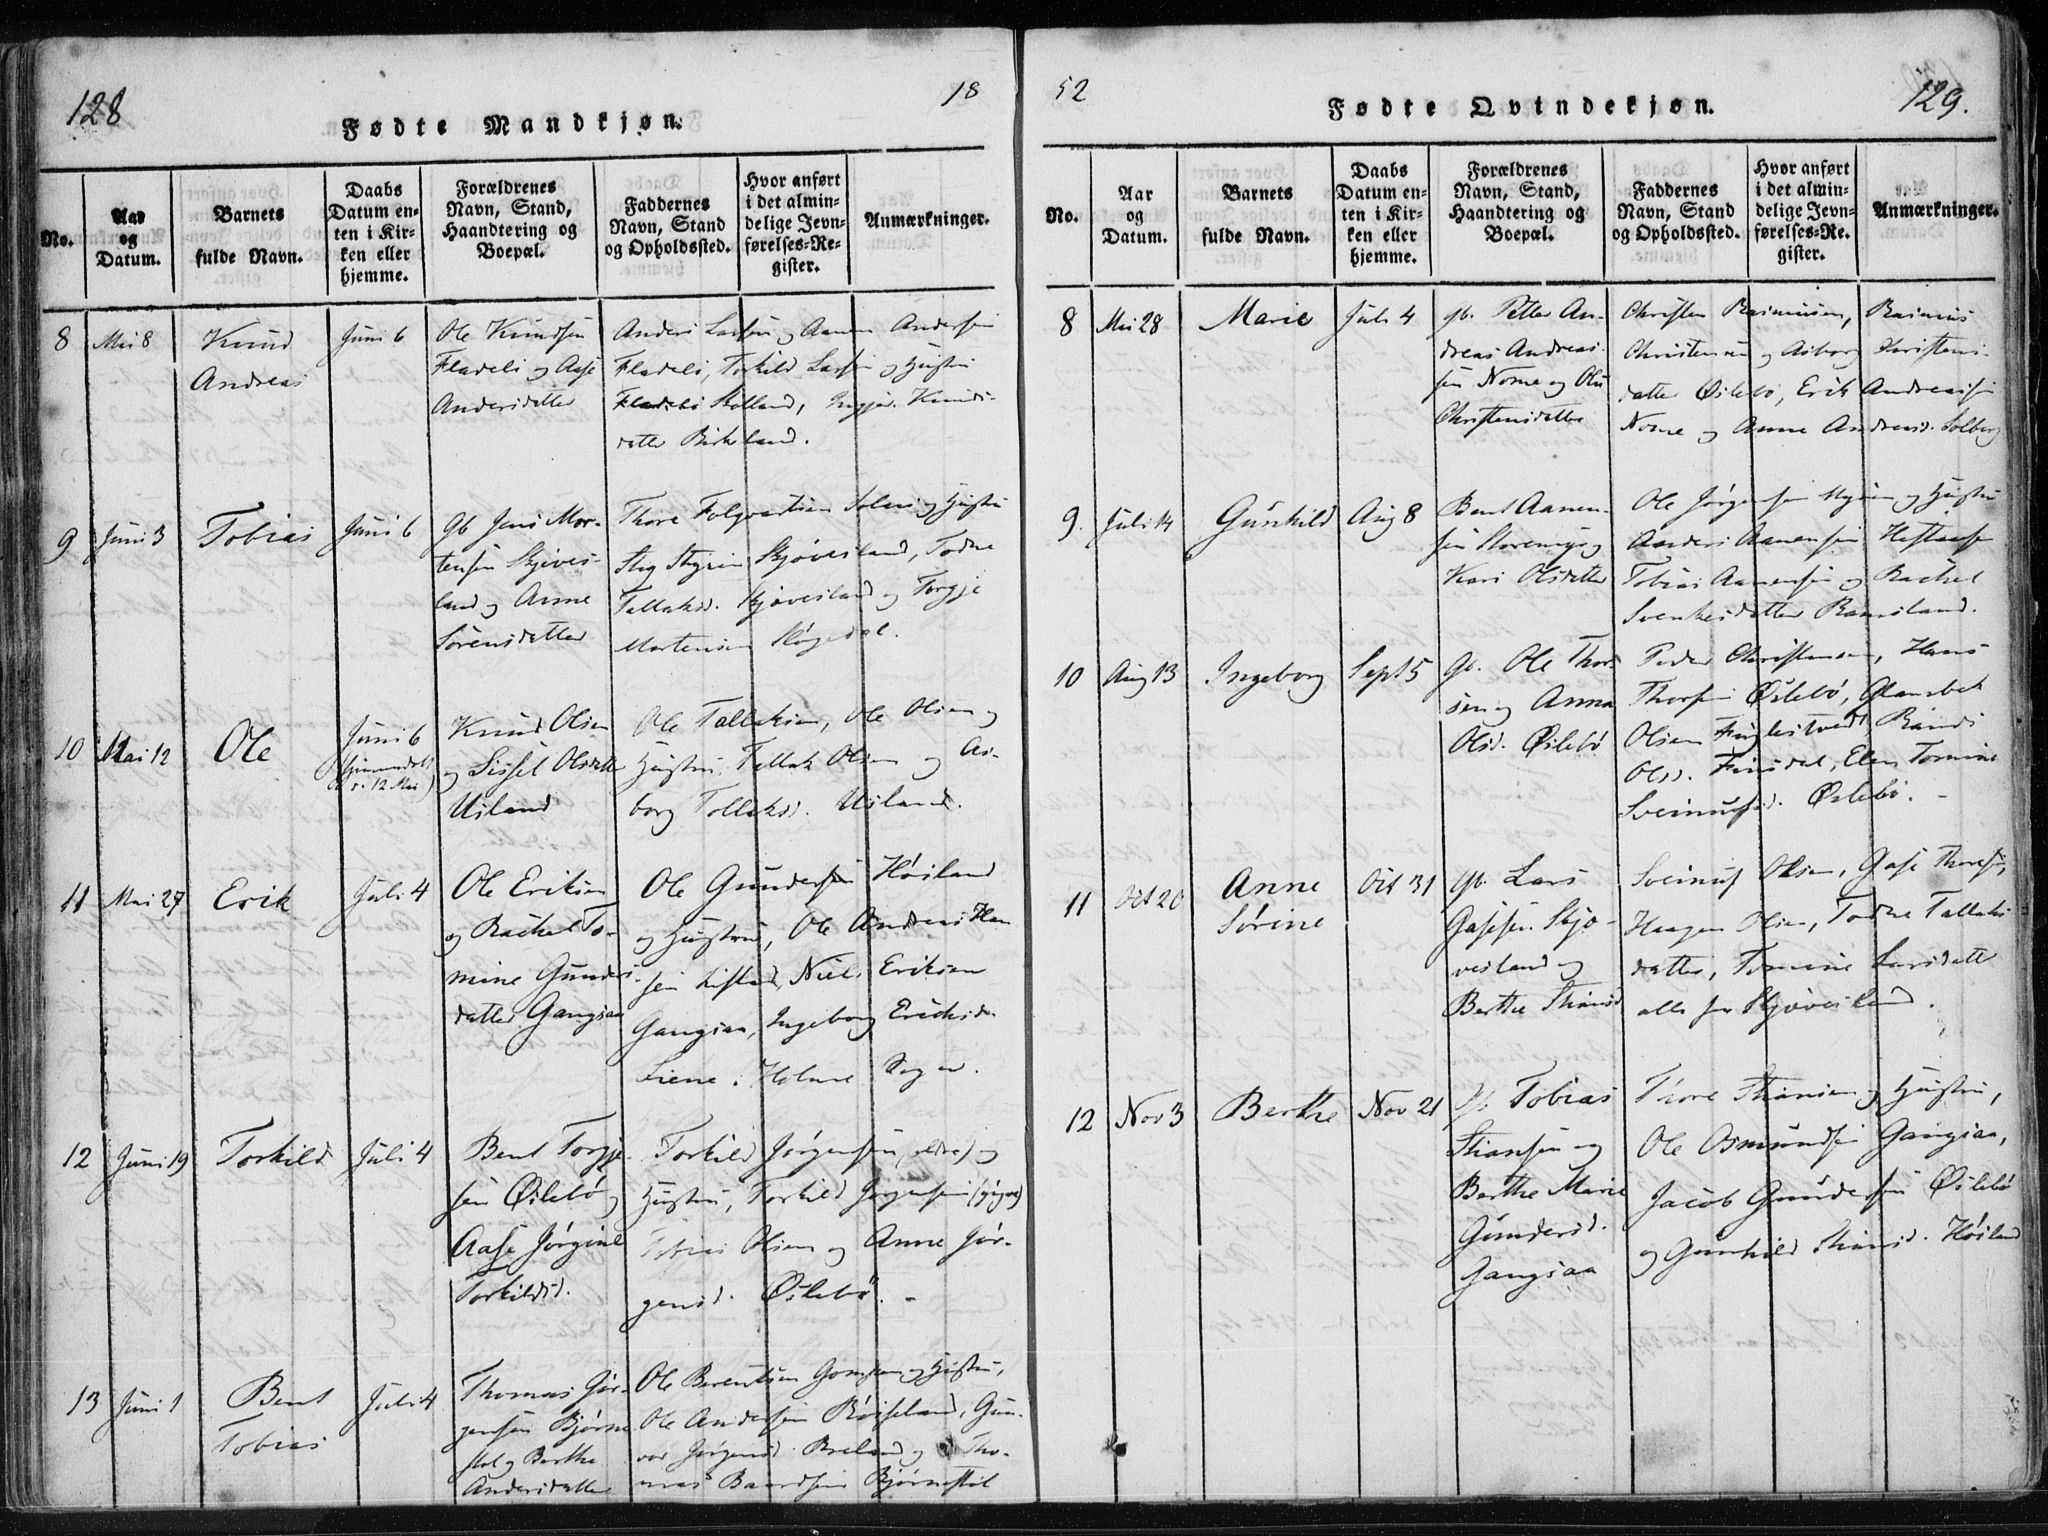 128
18
Fødte Mandkjøn.
No.
Aar og Datum.
Barnets fulde Navn.
Daabs Datum enten i Kirken eller hjemme.
Forældrenes Navn, Stand, Haandtering og Boepæl.
Faddernes Navn, Stand og Opholdssted.
Hvor anført i det almindelige Jevnførelses=Register.
Anmærkninger.
8 Mai 8 Knud Andreas Juni 6
Ole Knudsen
Fladeli og Aase
Andersdatter
Anders Larsen og Aanen Andersen
Fladeli, Torkild Larsen og Hustru
Fladeli Skolland, Ingjer Knuds-
datter Birkeland.
9 Juni 3 Tobias Juni 6
gb Jens Mor-
tensen Skjeves-
land og Anne
Sørensdatter
Thore Folqvardsen og Hustru
Stig Skjövesland, Todne
Tallaksd. Skjövesland og Torgje
Mortensen Høgedal.
10 Mai 12 Ole Juni 6
(hjemmedøbt
d. 12 Mai)
Knud Olsen
og Sissel Olsdatter
Usland
Ole Tallaksen, Ole Olsen og
Hustru, Tallak Olsen og As-
borg Tollaksd. Usland.
11 Mai 27 Erik Juli 4
Ole Eriksen
og Rachel To-
mine Gunders-
datter Gangsaa
Ole Gundersen Høiland
og Hustru, Ole Andreas Han
sen Listad, Niels Eriksen
Gangsaa, Ingeborg Eriksd.
Liene i Holme Sogn.
12 Juni 19 Torkild Juli 4
Bent Torgje-
sen Øslebö og
Aase Jørgine
Torkildsd.
Torkild Jørgensen (eldre) og
Hustru, Torkild Jørgensen (yngre)
Tobias Olsen og Anne Jør-
gensd. Øslebö.
13 Juni 1 Bent Tobias Juli 4
Thomas Jør-
gensen Bjørne
støl og Berthe
Andersdatter
Ole Berentsen og Hustru,
Ole Andersen Røisland, Gun-
vor Jørgensd. Breland og Tho-
mas Baardsen Bjørnestøl
52
129.
Fødte Qvindekjøn.
No.
Aar og Datum.
Barnets fulde Navn.
Daabs Datum enten i Kirken eller hjemme.
Forældrenes Navn, Stand, Haandtering og Boepæl.
Faddernes Navn, Stand og Opholdssted.
Hvor anført i det almindelige Jevnførelses=Register.
Anmærkninger.
8 Mai 28 Marie Juli 4
gb. Petter An-
dreas Andreas-
sen Nome og Olu
Christensdatter
Christen Rasmussen, Rasmus
Christensen og Asborg Christens-
datter Øslebö, Erik Andreassen
Nome og Anne Andreasd. Solberg
9. Juli 14 Gunhild Aug 8
Bent Aanen-
sen Storemyr og
Kari Olsdatter
Ole Jørgensen Myren og Hustru
Anders Aanensen Heftaasen
Tobias Aanensen og Rachel
Svenkesdatter Ramsland.
10 Aug 13 Ingeborg Sept 5
gb. Ole Thor-
sen og Anna
Olsd. Øslebö
Peder Christensen, Hans
Thorsen Øslebö, Glansbek
Olsen Fuglestvedt, Randi
Olsd. Finsdal, Elen Tomine
Sveinusd. Øslebö.
11 Oct 20 Anne Sørine Oct 31
gb. Lars
Gasesen Skjø-
vesland og
Berthe Stiansd
Sveinus Olsen, Gase Thoresen,
Haagen Olsen, Todne Tallaks
datter, Tomine Larsdatter
alle fra Skjøvesland.
12 Nov 3 Berthe Nov 21
gb Tobias
Stiansen og
Berthe Marie
Gundersd.
Gangsaa
Thore Stiansen og Hustru,
Ole Osmundsen Gangsaa,
Jacob Gundersen Øslebö
og Gunhild Stiansd. Høiland